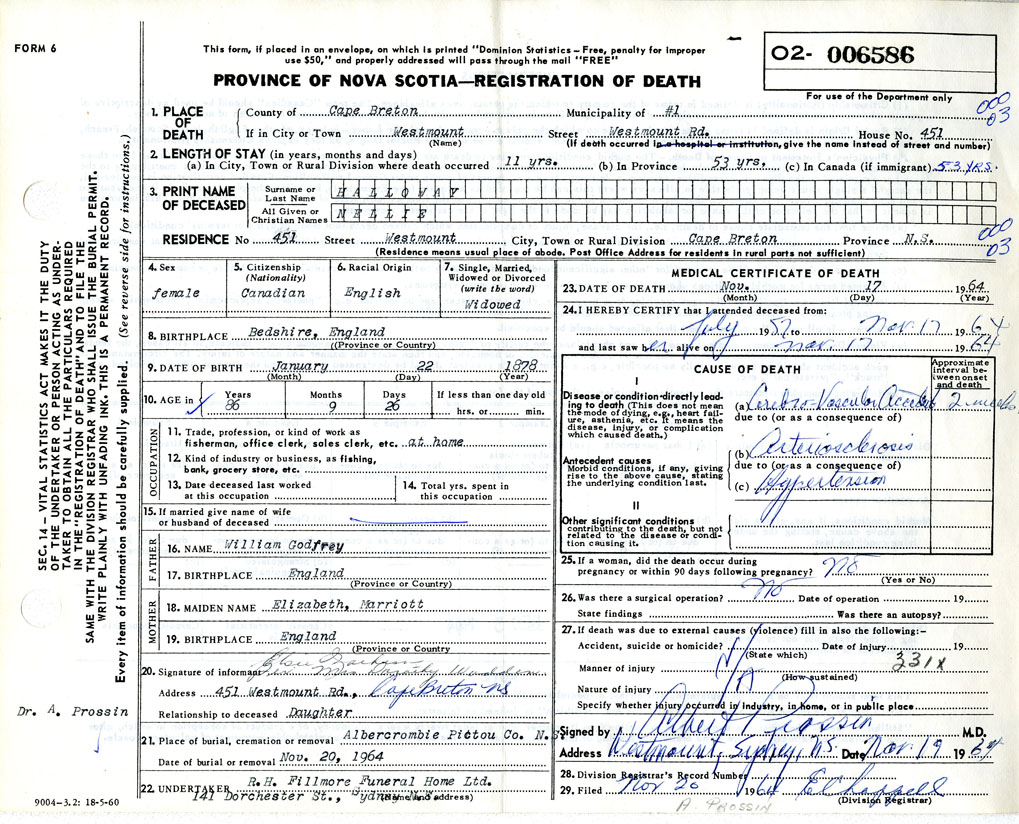 FORM 6
This form, if placed in an envelope, on which is printed "Dominion Statistics – Free, penalty for improper
use $50," and properly addressed will pass through the mail "FREE"
PROVINCE OF NOVA SCOTIA—REGISTRATION OF DEATH
02- 006586
For use of the Department only
000
03
1. PLACE OF DEATH
County of Cape Breton Municipality of #1
If in City or Town Westmount Street Westmount Rd. House No. 451
(Name) (If death occurred in a hospital or institution, give the name instead of street and number)
2. LENGTH OF STAY (in years, months and days)
(a) In City, Town or Rural Division where death occurred 11 yrs. (b) In Province 53 yrs. (c) In Canada (if immigrant) 53 yrs.
3. PRINT NAME OF DECEASED
Surname or Last Name HALLOWAY
All Given or Christian Names NELLIE
000
03
RESIDENCE No 451 Street Westmount City, Town or Rural Division Cape Breton Province N.S.
(Residence means usual place of abode. Post Office Address for residents in rural parts not sufficient)
4. Sex
female
5. Citizenship
(Nationality)
Canadian
6. Racial Origin
English
7. Single, Married,
Widowed or Divorced
(write the word)
Widowed
8. BIRTHPLACE Bedshire, England
((Province or Country)
9. DATE OF BIRTH January 22 1878
(Month) (Day) (Year)
10. AGE in
Years Months Days If less than one day old
86 9 26 hrs. or min.
OCCUPATION
11. Trade, profession, or kind of work as
fisherman, office clerk, sales clerk, etc. at home
12. Kind of industry or business, as fishing,
bank, grocery store, etc.
13. Date deceased last worked
at this occupation
14. Total yrs. spent in
this occupation
15. If married give name of wife
or husband of deceased
FATHER
16. NAME William Godfrey
17. BIRTHPLACE England
(Province or Country)
MOTHER
18. MAIDEN NAME Elizabeth, Marriott
19. BIRTHPLACE England
(Province or Country
20. Signature of informant
Address 451 Westmount Rd., Cape Breton NS
Relationship to deceased Daughter
21. Place of burial, cremation or removal Albercrombie Pittou Co. N.S.
Date of burial or removal Nov. 20, 1964
22. UNDERTAKER R.H. Fillmore Funeral Home Ltd.
141 Dorchester St., Sydney N.S.
(Name and address)
MEDICAL CERTIFICATE OF DEATH
23. DATE OF DEATH Nov. 17 1964
(Month) (Day) (Year)
24. I HEREBY CERTIFY that I attended deceased from:
July 1957 to Nov. 17 1964
and last saw her alive on Nov. 17 1964
CAUSE OF DEATH
Approximate
interval be-
tween onset
and death
I
Disease or condition directly lead-
ing to death (This does not mean
the mode of dying, e.g., heart fail-
ure, asthenia, etc. It means the
disease, injury, or complication
which caused death.)
(a) Cerebro-Vascular Accident 2 weeks
due to (or as a consequence of)
Antecedent causes
Morbid conditions, if any, giving
rise to the above cause, stating
the underlying condition last.
(b) Arteriosclerosis
due to (or as a consequence of)
(c) Hypertension
II
Other significant conditions
contributing to the death, but not
related to the disease or condi-
tion causing it.
25. If a woman, did the death occur during
pregnancy or within 90 days following pregnancy? No
(Yes or No)
26. Was there a surgical operation? No Date of operation 19
State findings Was there an autopsy?
27. If death was due to external causes (violence) fill in also the following:–
Accident, suicide or homicide? Date of injury 19
(State which)
331x
Manner of injury
(How sustained)
N/A
Nature of injury
Specify whether injury occurred in industry, in home, or in public place
Signed by Albert Prossin M.D.
Address Westmount, Sydney, N.S. Date Nov. 19 1964
28. Division Registrar's Record Number
29. Filed Nov 20 1964 E Chappell
(Division Registrar)
A PROSSIN
SEC. 14 – VITAL STATISTICS ACT MAKES IT THE DUTY
OF THE UNDERTAKER OR PERSON ACTING AS UNDER-
TAKER TO OBTAIN ALL THE PARTICULARS REQUIRED
IN THE "REGISTRATION OF DEATH" AND TO FILE THE
SAME WITH THE DIVISION REGISTRAR WHO SHALL ISSUE THE BURIAL PERMIT.
WRITE PLAINLY WITH UNFADING INK. THIS IS A PERMANENT RECORD.
Every item of information should be carefully supplied. (See reverse side for instructions.)
Dr. A. Prossin
9004-3.2: 18-5-60